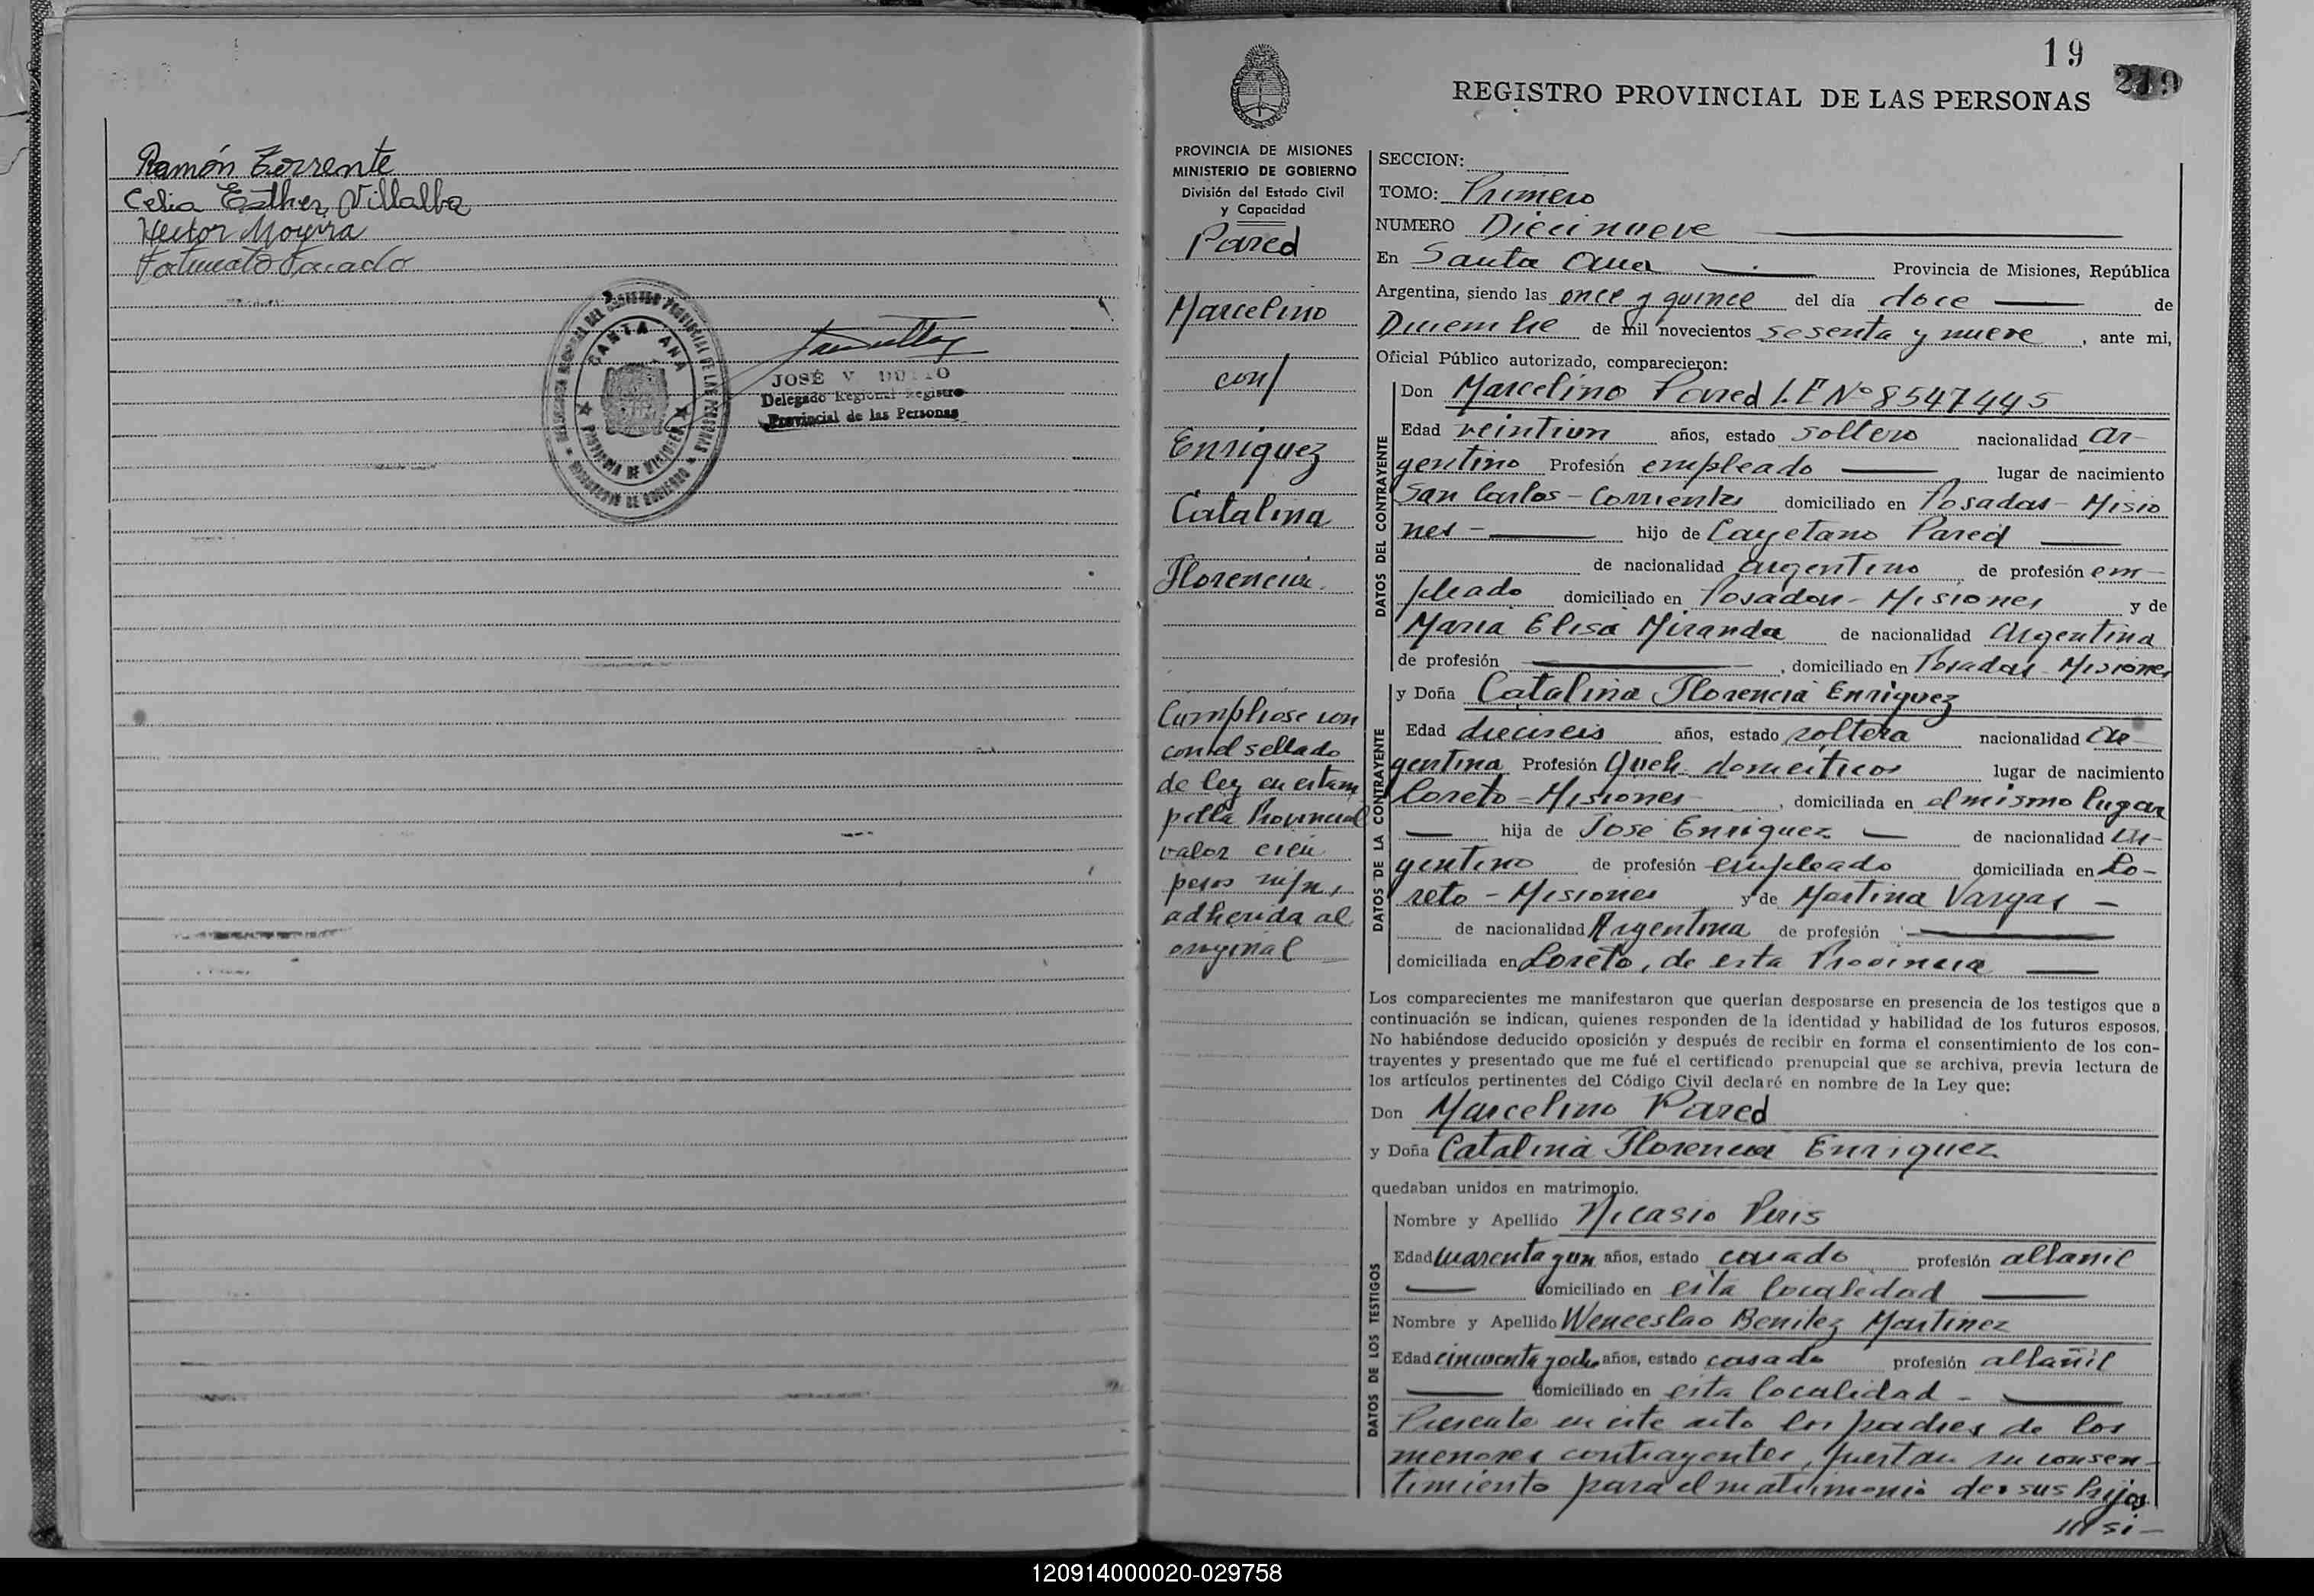 Ramón Torrente
Celia Esther Villalba
Hector Moyera
SANTA ANA
PROVINCIA DE MISIONES
JOSÉ V
Delegado Regional Registro
Provincial de las Personas
19
219
REGISTRO PROVINCIAL DE LAS PERSONAS
PROVINCIA DE MISIONES
MINISTERIO DE GOBIERNO
División del Estado Civil
y Capacidad
Pared
Marcelino
con/
Enriquez
Catalina
Florencia.
Cumpliose con
con el sellado
de ley en estam
pilla Provincial
valor cien
pesos m/n,
adherida al
original
SECCION:
TOMO: Primero
NUMERO Diecinueve
En Santa Ana Provincia de Misiones, República
Argentina, siendo las once y quince del día doce de
Diciembre de mil novecientos sesenta y nueve, ante mi,
Oficial Público autorizado, comparecieron:
DATOS DEL CONTRAYENTE
Don Marcelino Pared L.E Nº 8547445
Edad veintiun años, estado soltero nacionalidad ar-
gentino Profesión empleado lugar de nacimiento
San Carlos - Corrientes domiciliado en Posadas - Misio
nes - hijo de Cayetano Pared
de nacionalidad argentino de profesión em-
pleado domiciliado en Posadas - Misiones y de
Maria Elisa Miranda de nacionalidad Argentina
de profesión , domiciliado en Posadas - Misiones
DATOS DE LA CONTRAYENTE
y Doña Catalina Florencia Enriquez
Edad dieciseis años, estado soltera nacionalidad ar-
gentina Profesión Queh. domesticos lugar de nacimiento
Loreto - Misiones , domiciliada en el mismo lugar
hija de Jose Enriquez de nacionalidad ar-
gentino de profesión empleado domiciliada en Lo-
reto - Misiones y de Martina Vargas -
de nacionalidad Argentina de profesión
domiciliada en Loreto, de esta Provincia
Los comparecientes me manifestaron que querían desposarse en presencia de los testigos que a
continuación se indican, quienes responden de la identidad y habilidad de los futuros esposos.
No habiéndose deducido oposición y después de recibir en forma el consentimiento de los con-
trayentes y presentado que me fué el certificado prenupcial que se archiva, previa lectura de
los artículos pertinentes del Código Civil declaré en nombre de la Ley que:
Don Marcelino Pared
y Doña Catalina Florencia Enriquez
quedaban unidos en matrimonio.
DATOS DE LOS TESTIGOS
Nombre y Apellido Nicasio Piris
Edad cuarenta y un años, estado casado profesión albanil
domiciliado en esta localidad
Nombre y Apellido Wenceslao Benitez Martinez
Edad cincuenta y ocho años, estado casado profesión albañil
domiciliado en esta localidad -
Presente en este acto los padres de los
menores contrayentes, prestan su consen-
timiento para el matrimonio de sus hijos
/// si -
120914000020-029758